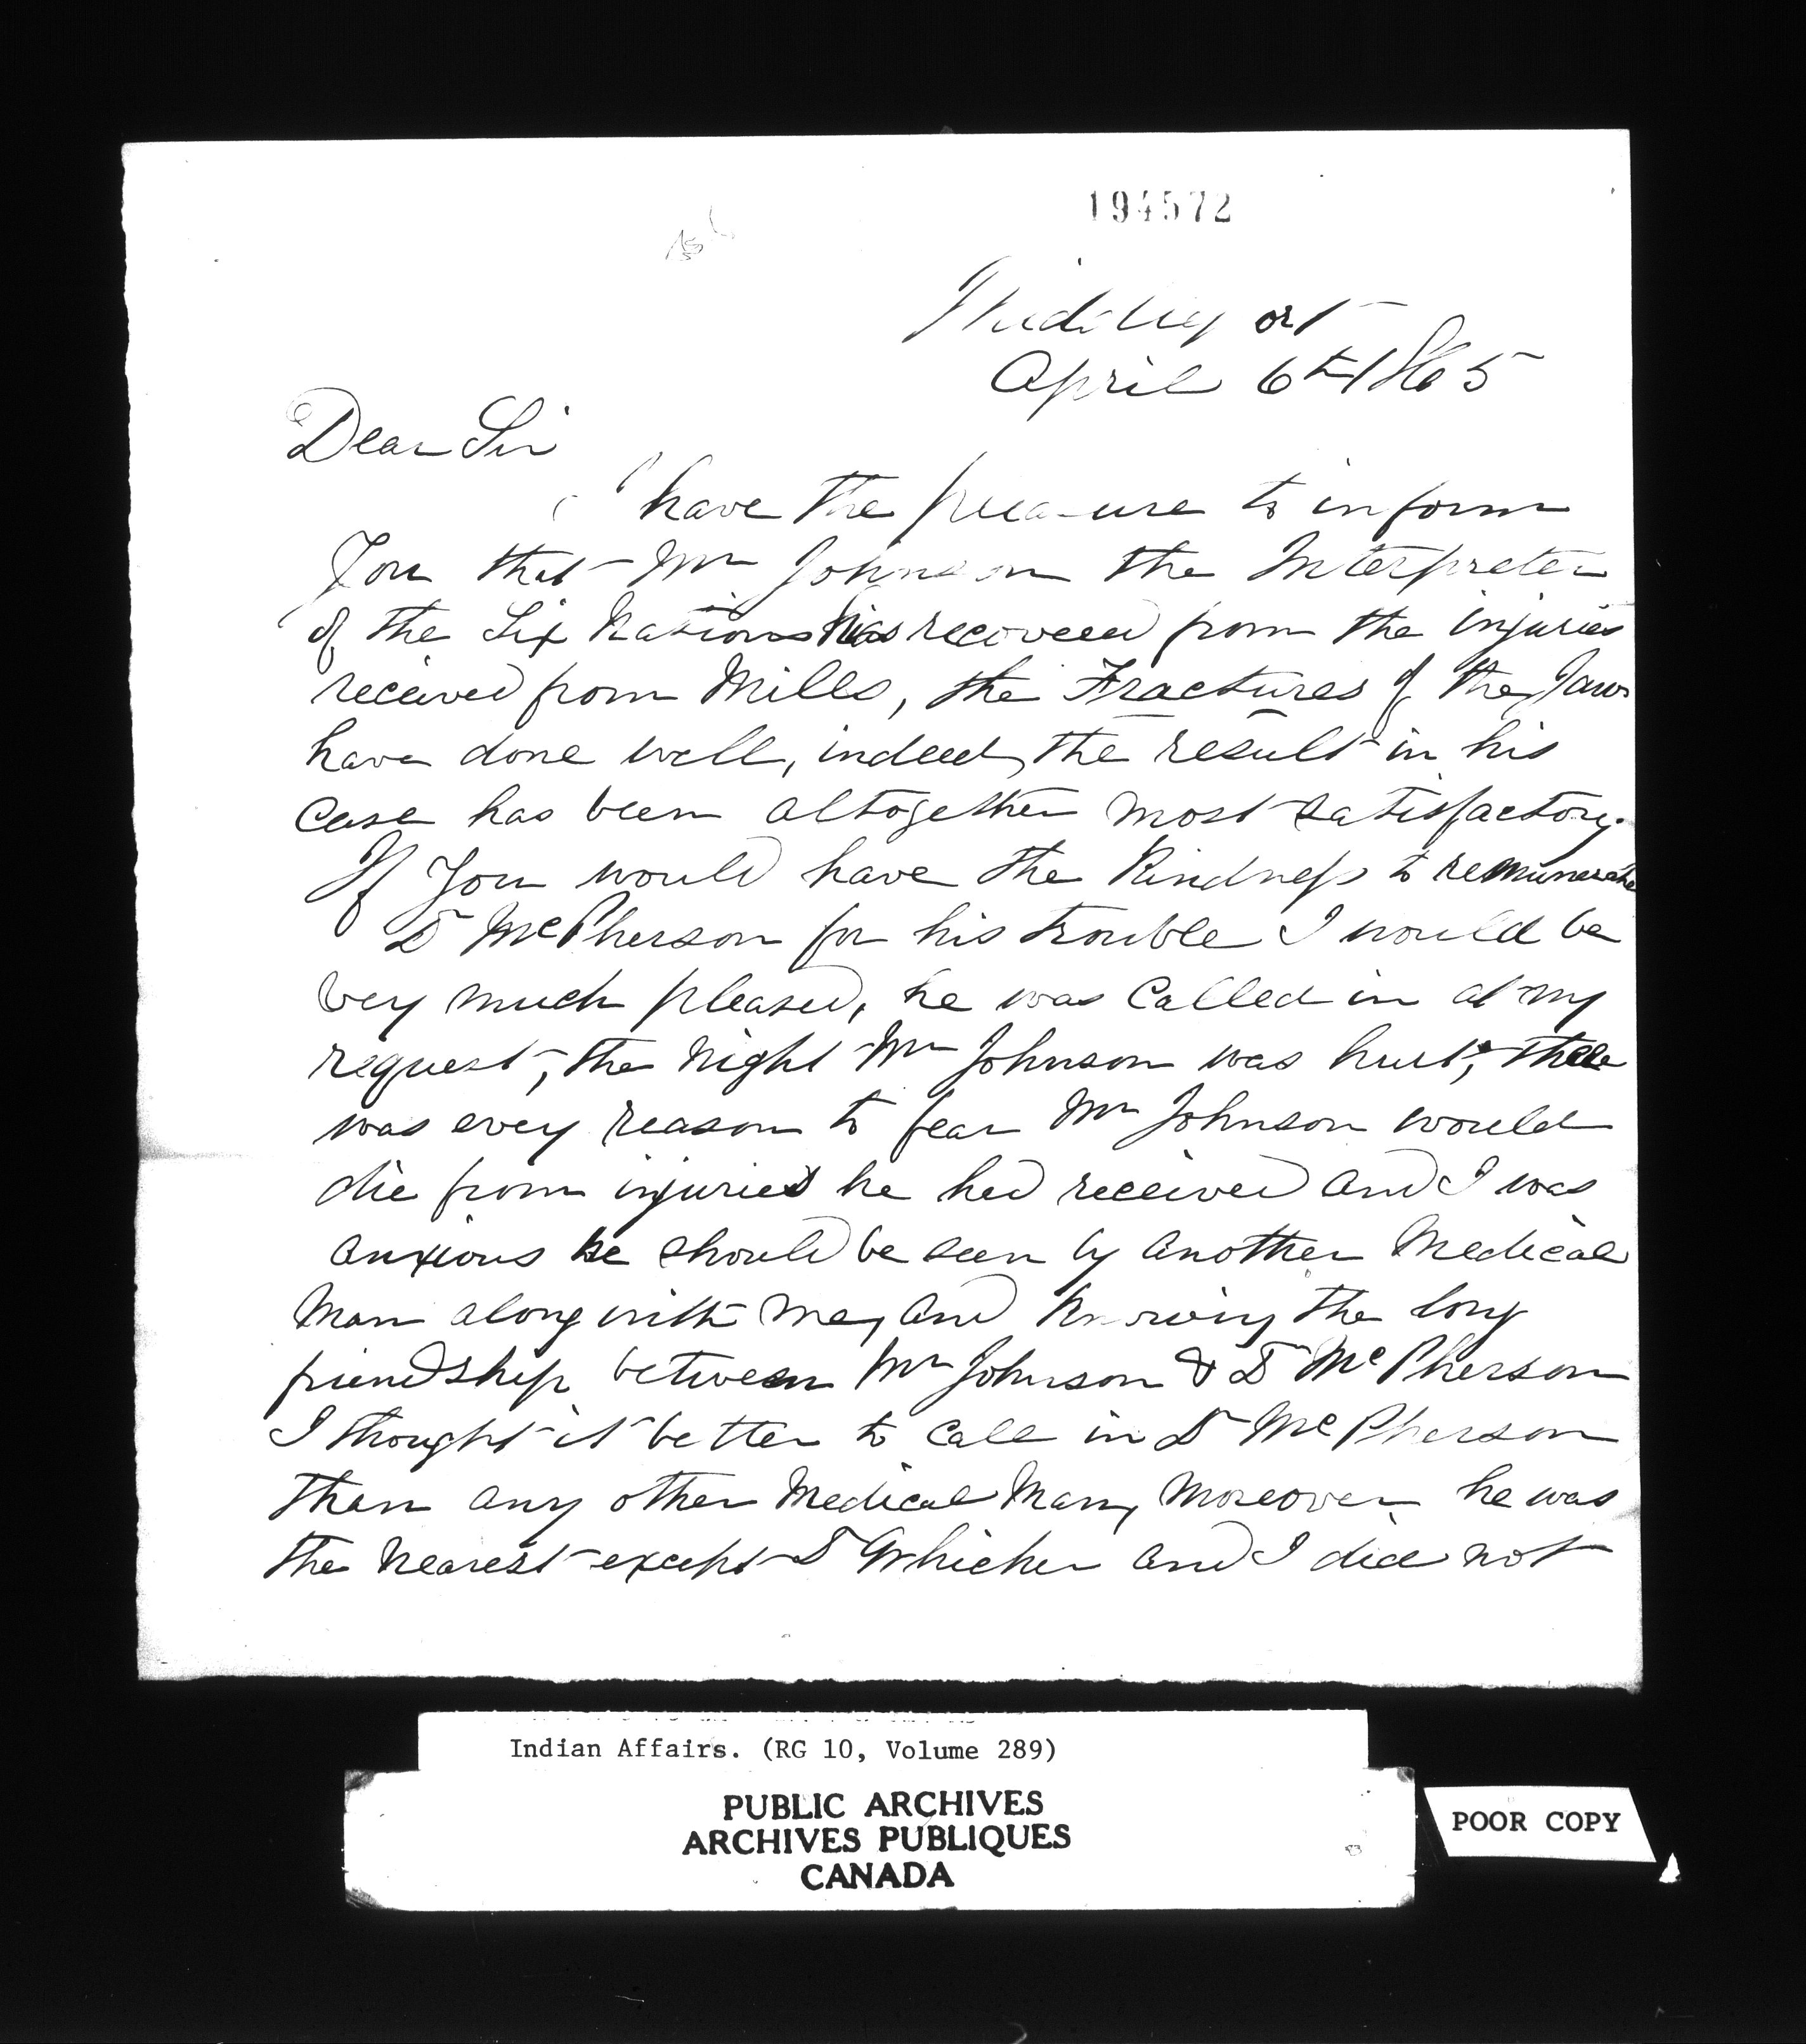 194572
Middleport
April 6th 1865
Dear Sir
I have the pleasure to inform
You that Mr Johnson the Interpreter
of the Six Nations has recovered from the injuries
received from Mills, the Fractures of the Jaws
have done well, indeed, the result in his
case has been altogether most satisfactory.
If You would have the Kindness to remunerate
Dr McPherson for his trouble I would be
very much pleased, he was Called in at my
request, the Night Mr Johnson was hurt, there
was every reason to fear Mr Johnson would
die from injuries he had received and I was
anxious he should be seen by another Medical
Man along with me, and Knowing the long
friendship between Mr Johnson & Dr McPherson
I thought it better to call in Dr McPherson
than any other Medical Man, Moreover he was
the Nearest except Dr Whicher and I did not
Indian Affairs. (RG 10, Volume 289)
PUBLIC ARCHIVES
ARCHIVES PUBLIQUES
CANADA
POOR COPY